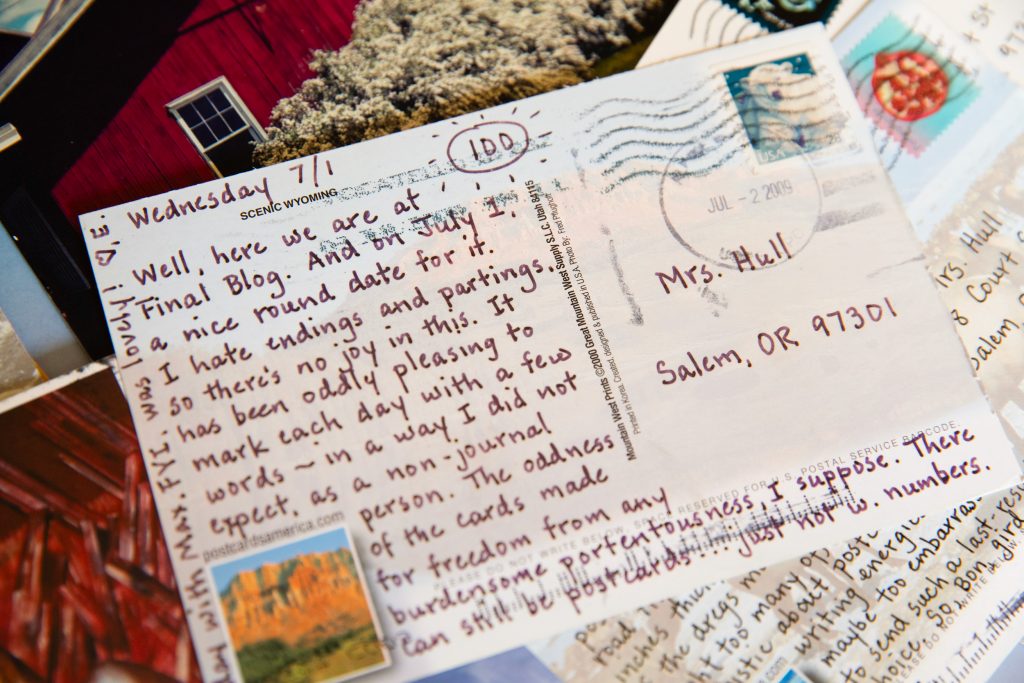 Wednesday 7/1
100
SCENIC WYOMING
Well, here we are at
Final Blog. And on July 1,
a nice round date for it.
I hate endings and partings.
so there's no joy in this. It
has been oddly pleasing to
mark each day with a few
words ~ in a way I did not
expect, as a non-journal
person. The oddness
of the cards made
for freedom from any
burdensome portentousness, I suppose. There
Can still be postcards... just not w. numbers.
FYI. was lovely!
postcardsamerica.com
Mountain West Prints ©2000 Great Mountain West Supply S.L.C. Utah 84115
Printed in Korea. Created, designed & published in U.S.A. Photo By: Fred Pflughoft
USA
JUL - 2 2009
Mrs. Hull
Salem, OR 97301
PLEASE DO NOT WRITE BELOW. SPACE RESERVED FOR U.S. POSTAL SERVICE BARCODE.
St
973
Mrs. Hull
Court
Salem,
road
inches
the dregs
too many
about poste
writing energi
maybe too embarras
to send such a last.
choice. So Bon